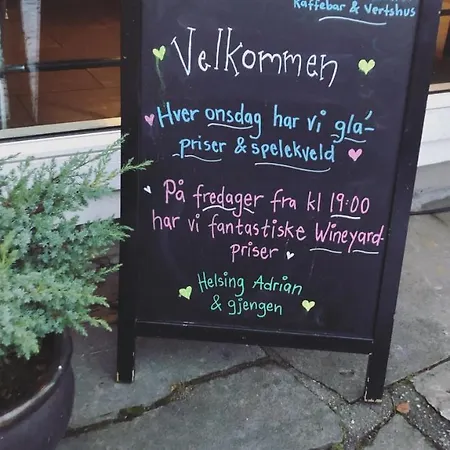 Kaffebar & Vertshus
Velkommen
Hver onsdag har vi gla'-
priser & spelekveld
På fredager fra kl 19:00
har vi fantastiske Wineyard-
priser
Helsing Adrian
& gjengen